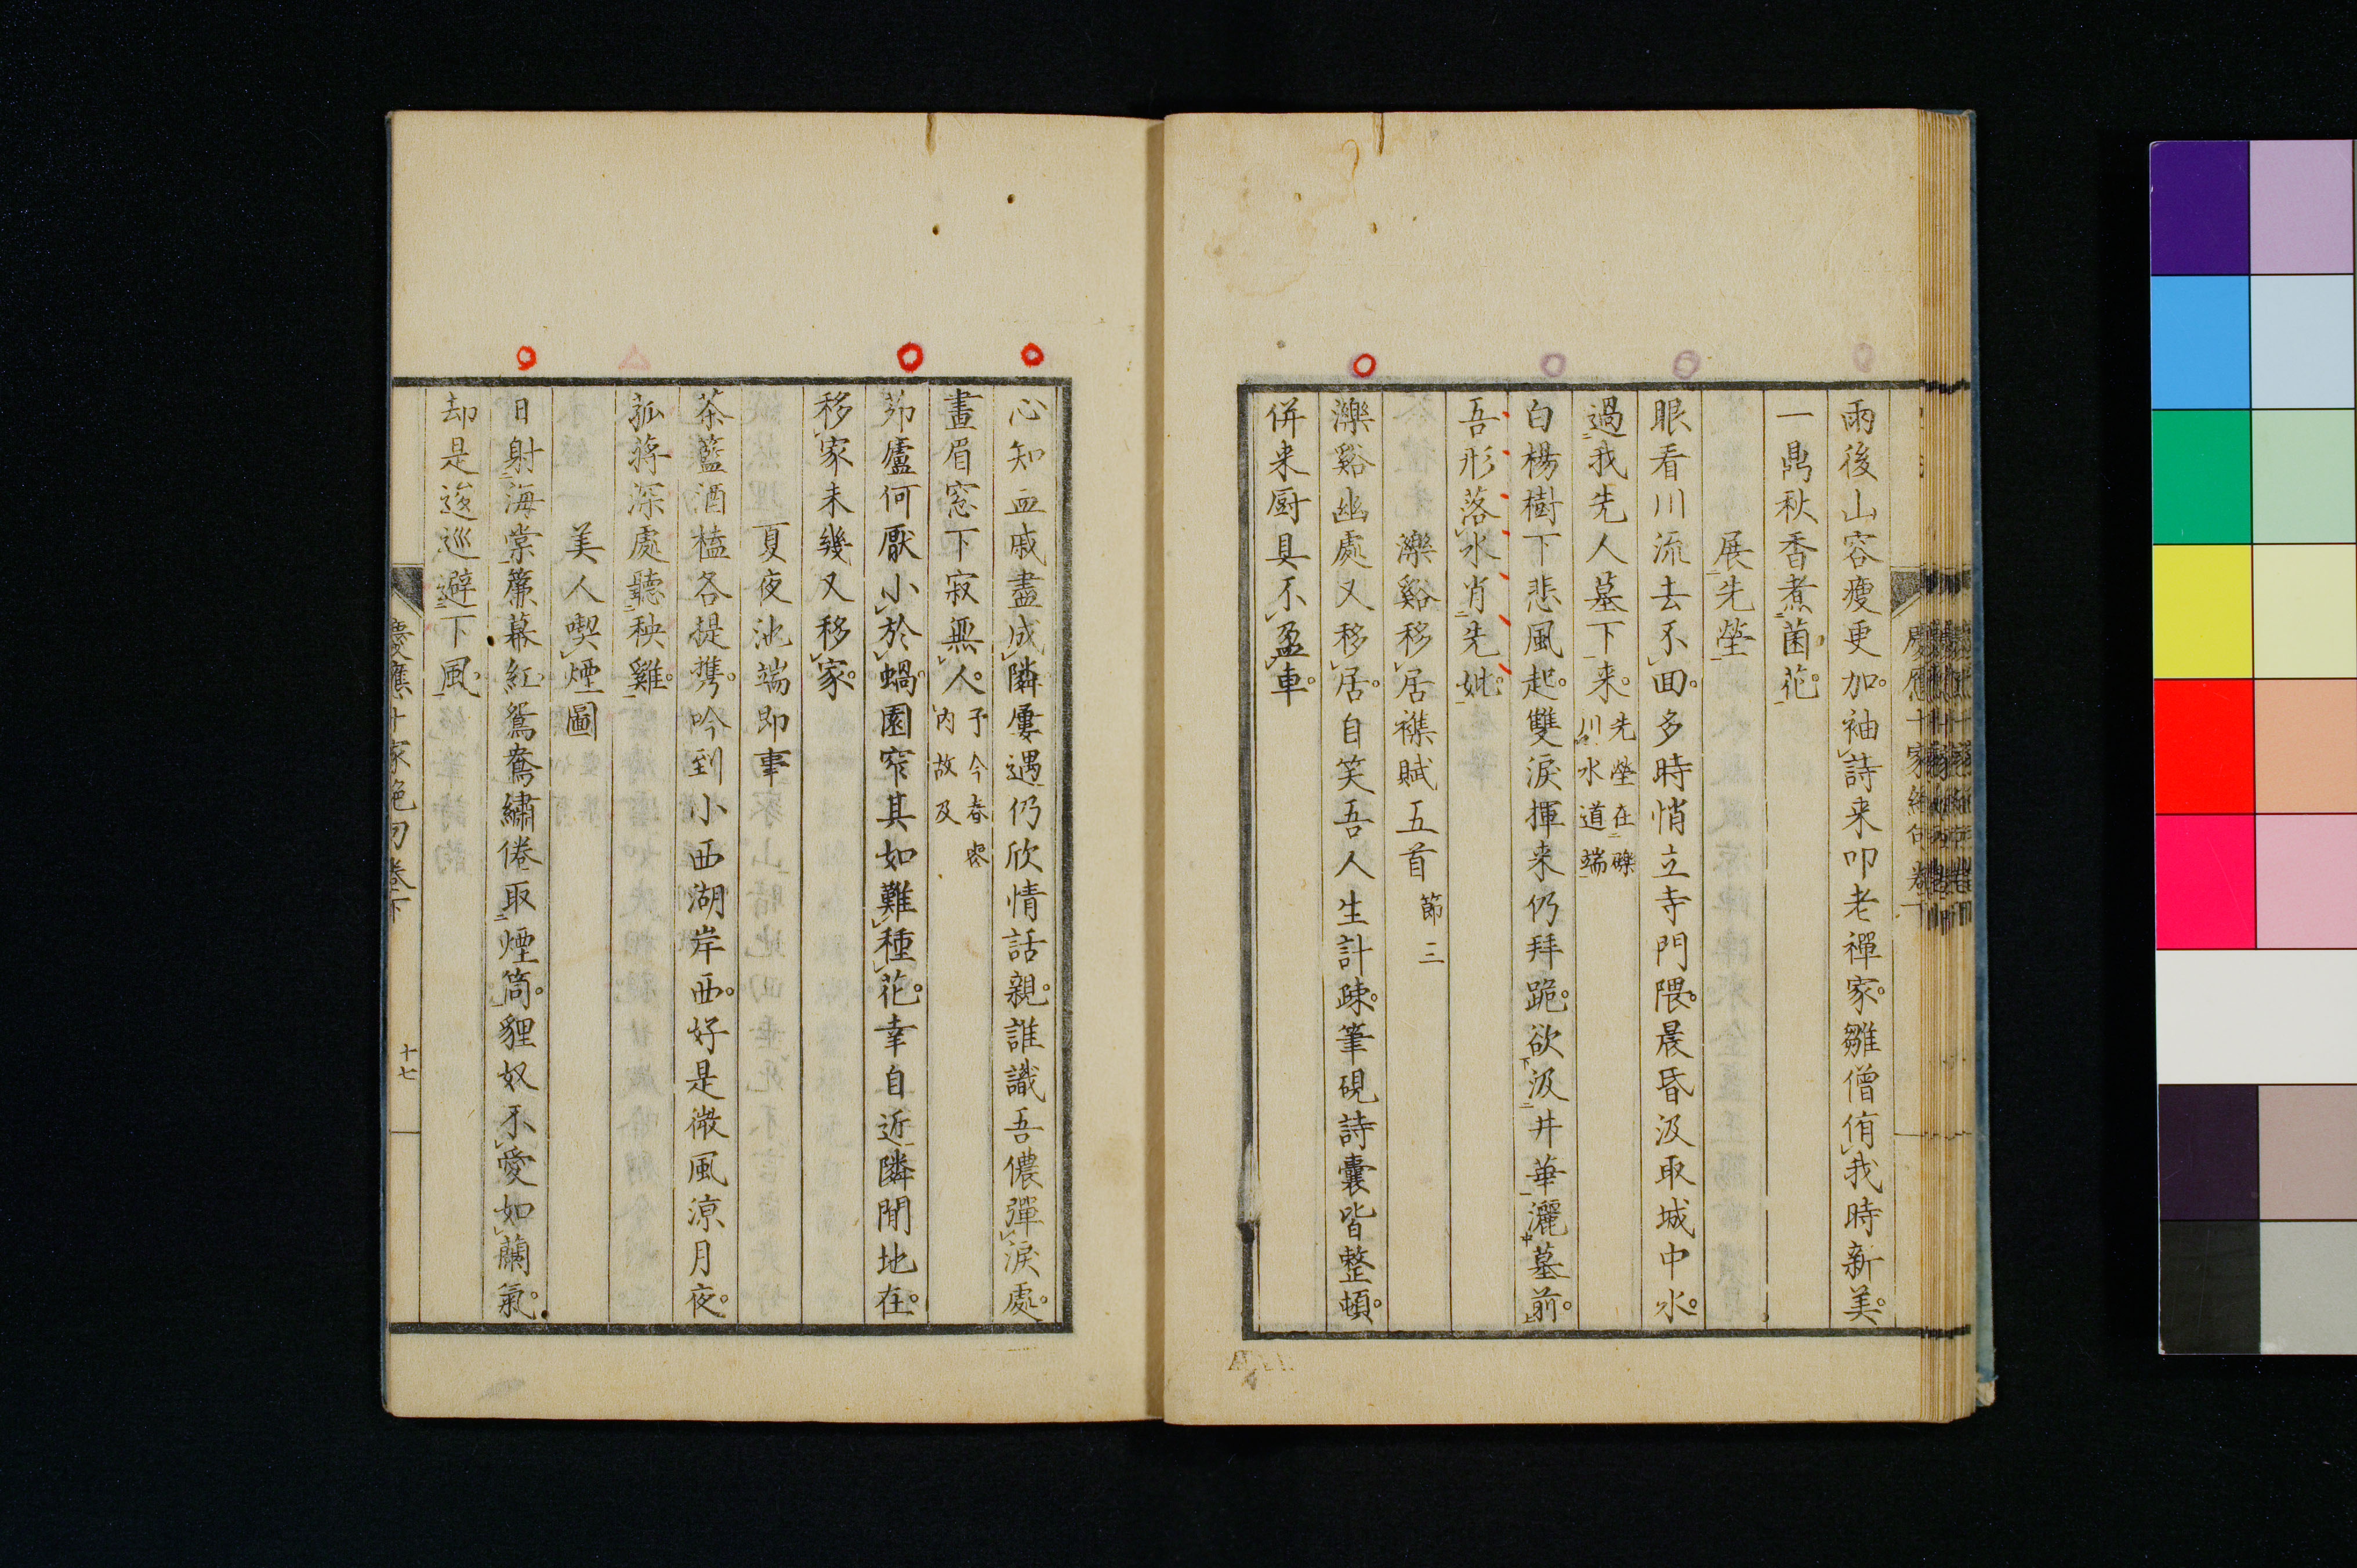 雨後山容瘦更加袖詩来叩老禪家雛僧侑我時新美
一鼎秋香煮菌花
展先塋
眼看川流去不回多時悄立寺門隈晨昏汲取城中水
過我先人墓下来先塋在礫川水道端
白楊樹下悲風起雙淚揮来仍拜跪欲汲井華灑墓前
吾形落水肖先妣
濼谿移居襍賦五首節三
濼谿幽處又移居自笑吾人生計疎筆硯詩囊皆整頓
併来厨具不盈車
慶應十家絶句卷下
心知血戚盡成隣屢遇仍欣情話親誰識吾儂彈淚處
畫眉窓下寂無人予今春喪内故及
茆廬何厭小於蝸園窄其如難種花幸自近隣閒地在
移家未幾又移家
夏夜池端即事
茶籃酒榼各提携吟到小西湖岸西好是微風涼月夜
菰蒋深處聽秧雞
美人喫煙圖
日射海棠簾幕紅鴛鴦繡倦取煙筒貍奴不愛如蘭氣
却是逡巡避下風
慶應十家絶句卷下
十七